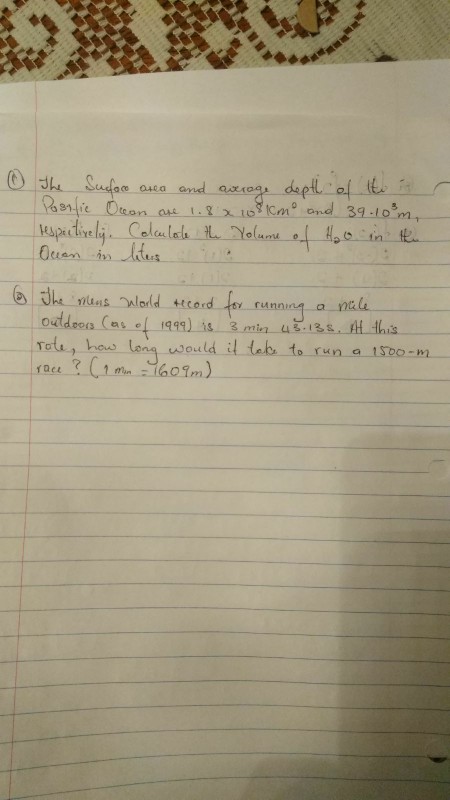 ① The Surface area and average depth of the
Pacific Ocean are 1.8 x 10⁸ Km² and 39.10³m,
respectively. Calculate the Volume of H₂O in the
Ocean in liters
② The mens World record for running a mile
outdoors (as of 1999) is 3 min 43.13s. At this
rate, how long would it take to run a 1500-m
race? (1 min = 1609m)